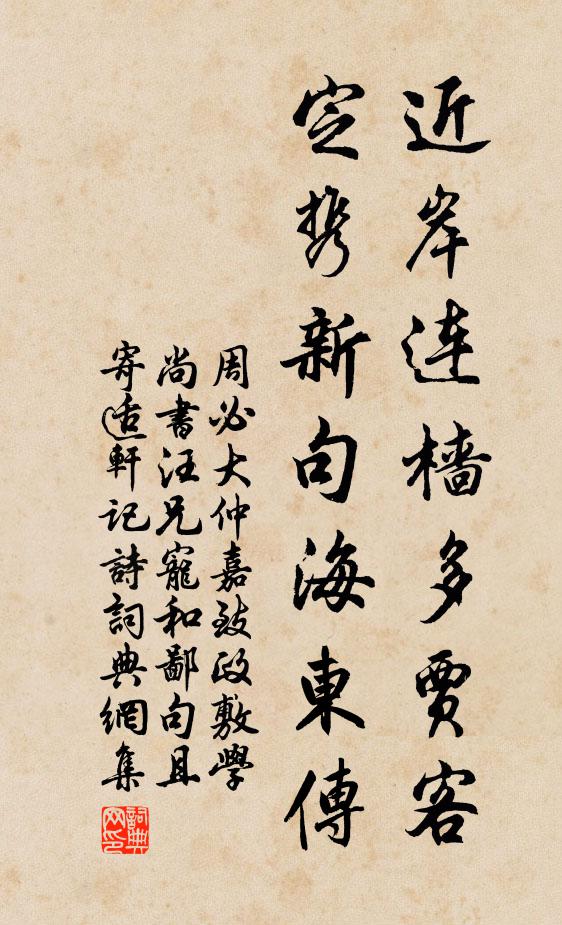 近岸連檣多賈客
定携新句海東傳
周必大仲嘉致政敷學
尚書汪兄寵和鄙句且
寄适軒记詩詞典網集
詞典网印